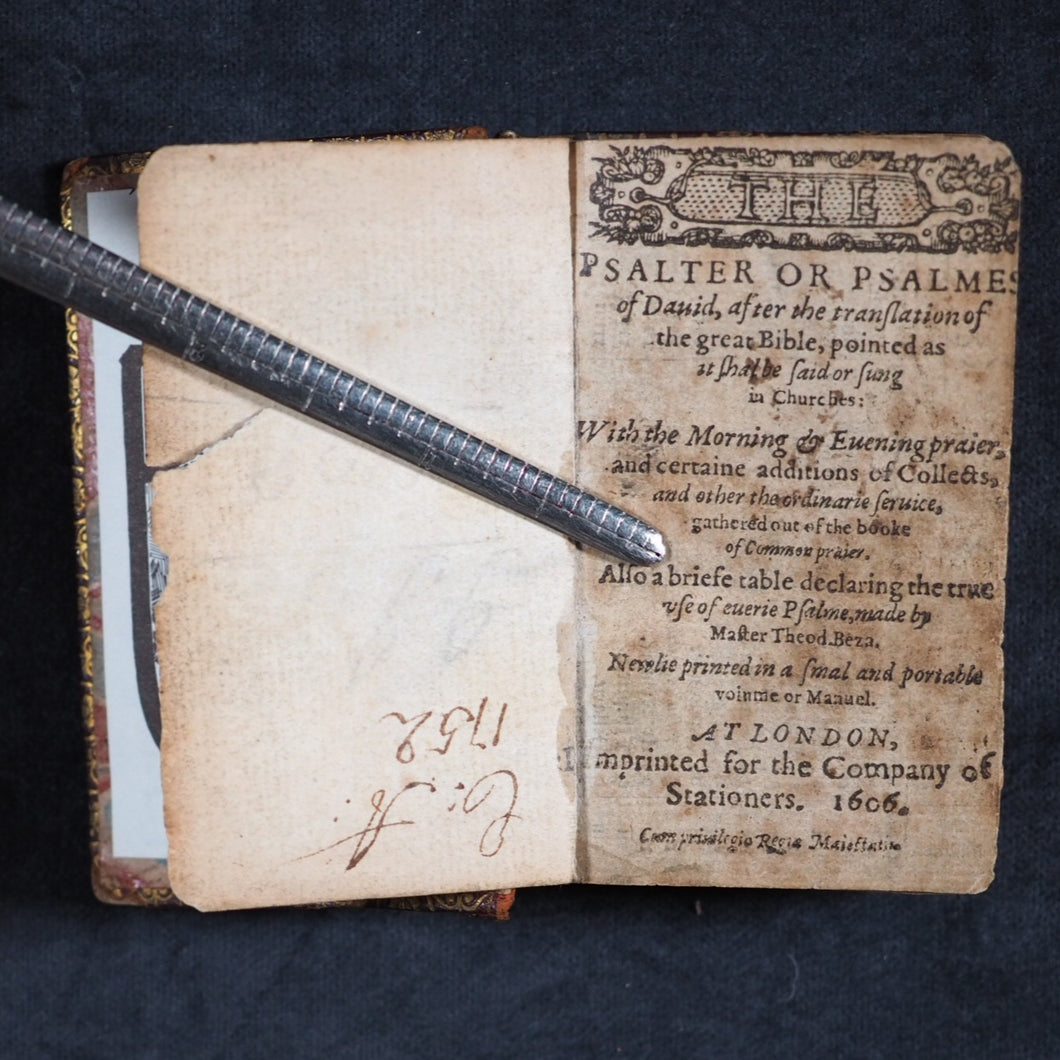 1752
C: A:
THE
PSALTER OR PSALMES
of Dauid, after the tranſlation of
the great Bible, pointed as
it ſhal be ſaid or ſung
in Churches:
With the Morning & Euening praier,
and certaine additions of Collects,
and other the ordinarie ſeruice,
gathered out of the booke
of Common praier.
Alſo a briefe table declaring the true
vſe of euerie Pſalme, made by
Maſter Theod. Beza.
Newlie printed in a ſmal and portable
volume or Manuel.
AT LONDON,
Imprinted for the Company of
Stationers. 1606.
Cum priuilegio Regiæ Maieſtatis